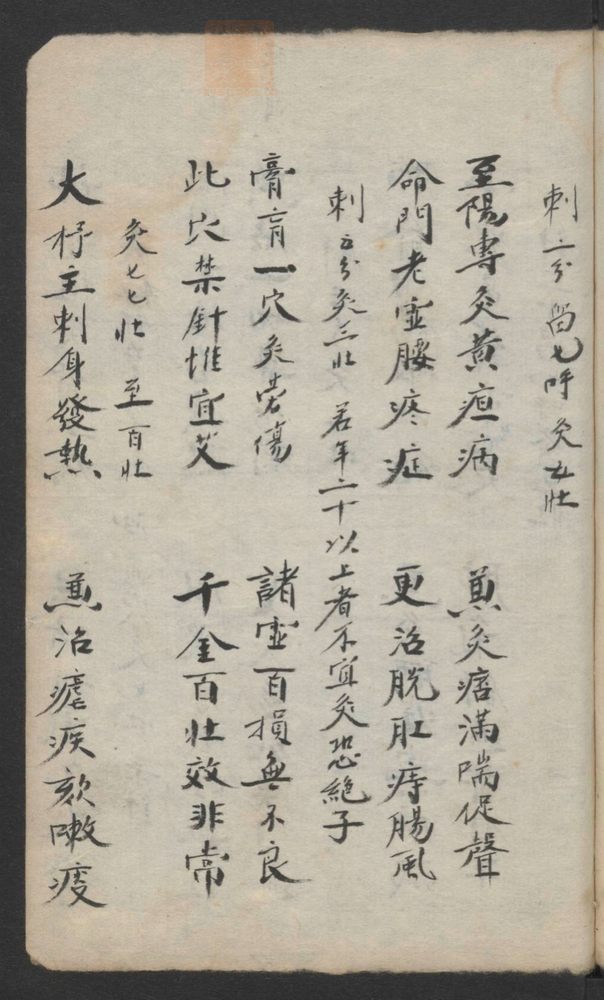 刺三分留七呼灸五壯
至陽專灸黃疸病 兼灸痞滿喘促聲
命門老虛腰疼症 更治脫肛痔腸風
刺五分灸三壯 若年二十以上者不宜灸恐絕子
膏肓一穴灸劳傷 諸虛百損無不良
此穴禁針惟宜艾 千金百壯效非常
灸七七壯 至百壯
大杼主刺身發熱 兼治瘧疾欬嗽痰